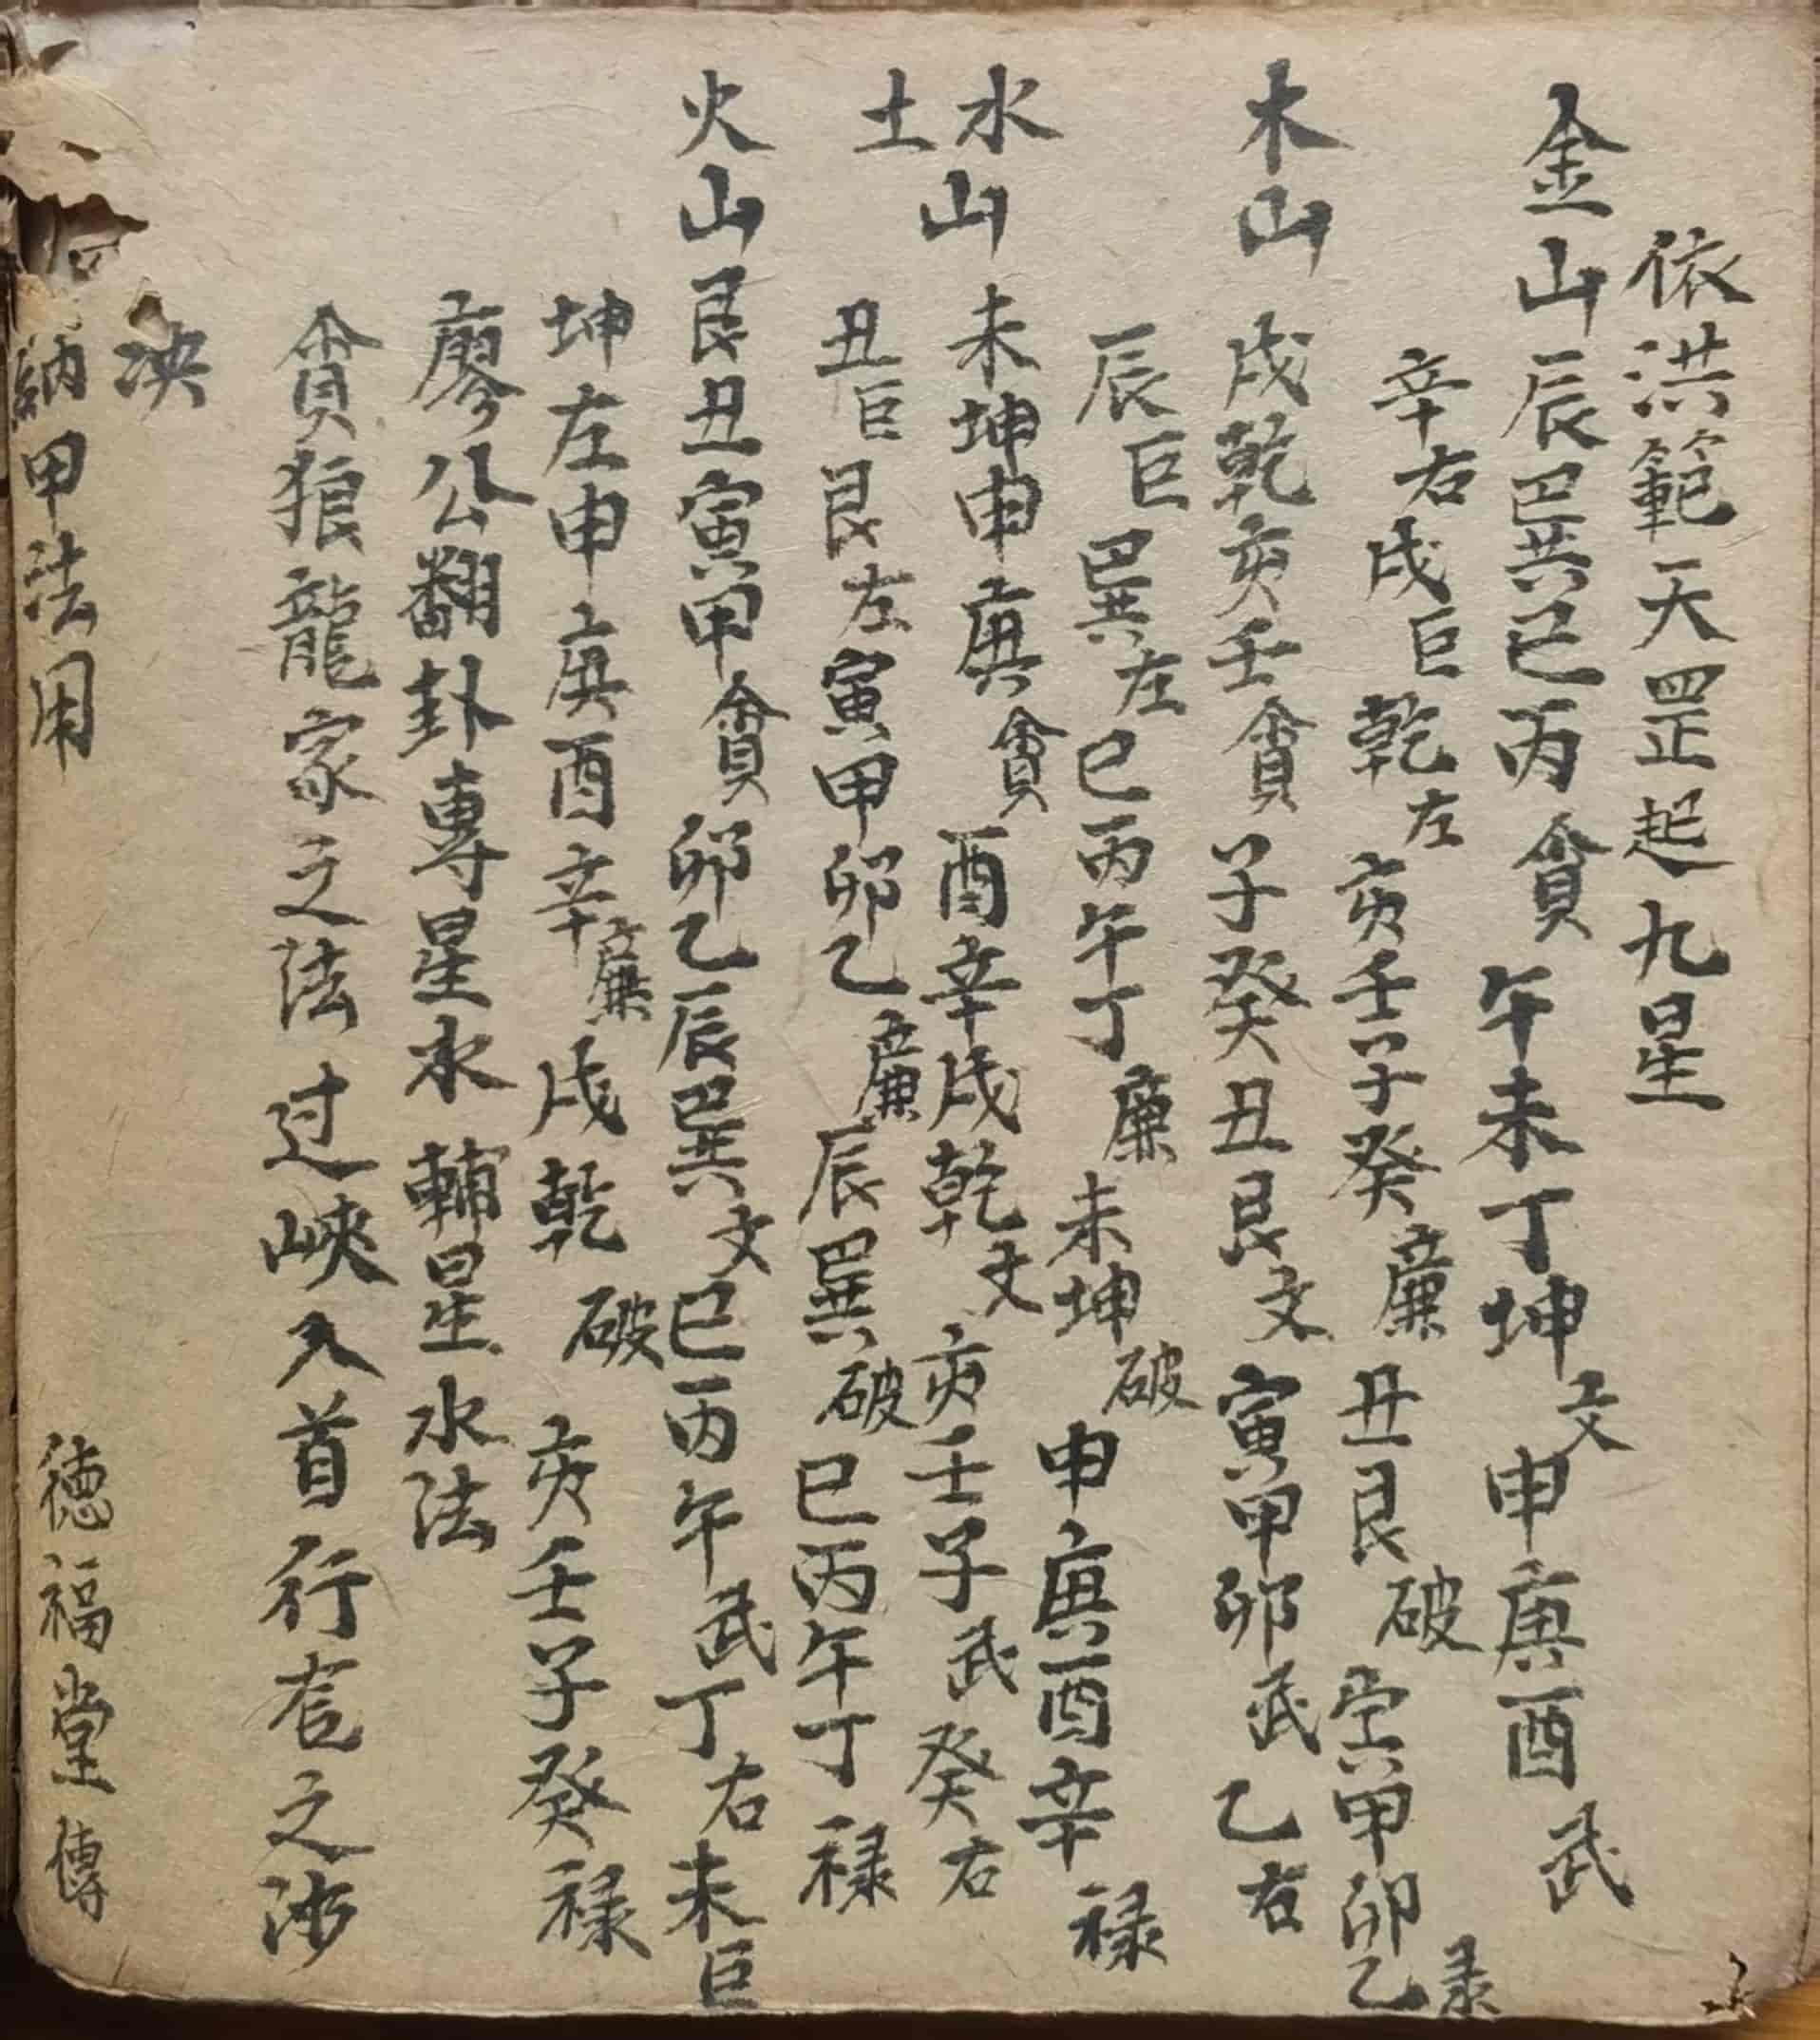 依洪範天罡起九星
金山辰巽巳丙貪午未丁坤文申庚酉武
辛右戌巨乾左亥壬子癸廉丑艮破寅甲卯乙彔
木山戌乾亥壬貪子癸丑艮文寅甲卯武乙右
辰巨巽左巳丙午丁廉未坤破申庚酉辛禄
水土山未坤申庚貪酉辛戌乾文亥壬子武癸右
丑巨艮左寅甲卯乙廉辰巽破巳丙午丁禄
火山艮丑寅甲貪卯乙辰巽文巳丙午武丁右未巨
坤左申庚酉辛廉戌乾破亥壬子癸禄
廖公翻卦專星水輔星水法
貪狼龍家之法过峽入首行
之
泱
納甲法用
德福堂傳